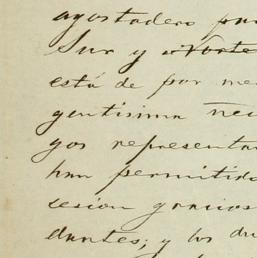 agostadero par
Sur y Norte
está de por me
gentísima nec
gos representa
han permitido
cesion gracios
dantes; y los du